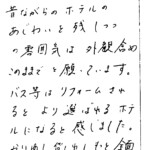 昔ながらのホテルの
あじわいと残しつつ
の雰囲気は外観含め
このままでと願っています。
バス等はリフォームされ
るとより選ばれるホテ
ルになると感じました。